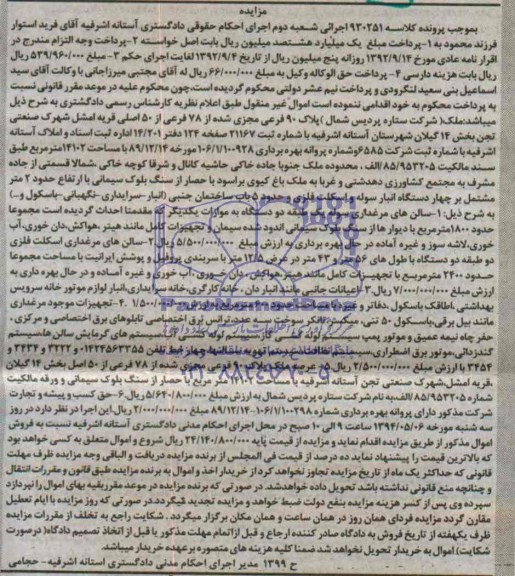 مزایده
بموجب پرونده کلاسه ۹۳۰۲۵۱ اجرائی شعبه دوم اجرای احکام حقوقی دادگستری آستانه اشرفیه آقای فرید استوار
فرزند محمود به ۱-پرداخت مبلغ یک میلیارد هشتصد میلیون ریال بابت اصل خواسته ۲-پرداخت وجه التزام مندرج در
اقرار نامه عادی مورخ ۱۳۹۲/۹/۱۴ روزانه پنج میلیون ریال از تاریخ ۱۳۹۲/۹/۴ لغایت اجرای حکم ۳-مبلغ ۵۳۹/۹۶۰/۰۰۰
ریال بابت هزینه دارسی ۴-پرداخت حق الوکاله وکیل به مبلغ ۶۶/۰۰۰/۰۰۰ ریال له آقای مجتبی میرزاجانی با وکالت آقای سید
اسماعیل بنی سعید لنگرودی و پرداخت نیم عشر دولتی محکوم گردیده است،چون محکوم علیه در موعد مقرر قانونی نسبت
به پرداخت محکوم به خود اقدامی ننموده است اموال غیر منقول طبق اعلام نظریه کارشناس رسمی دادگستری به شرح ذیل
میباشد:ملک( شرکت ستاره پردیس شمال )پلاک ۹۰ فرعی مجزی شده از ۷۸ فرعی از ۵۰ اصلی قریه امشل شهرک صنعتی
تجن بخش ۱۴ گیلان شهرستان آستانه اشرفیه با شماره ثبت ۲۱۱۶۷ صفحه ۱۲۴ دفتر ۱۴/۲۰۱ اداره ثبت اسناد و املاک آستانه
اشرفیه با شماره ثبت شرکت ۶۵۸۵ وشماره پروانه بهره برداری ۱۰۶/۱/۱۰۰۹۲۸ مورخه ۸۹/۱۲/۱۴ با مساحت ۱۴۱۰۲ مترمربع طبق
سند مالکیت ۸۵/۹۵۳۲۰۵/الف . محدوده ملک جنوبا جاده خاکی حاشیه کانال و شرقا کوچه خاکی ،شمالا قسمتی از جاده
مشرف به مجتمع کشاورزی دهدشتی و غربا به ملک باغ کیوی براسود با حصار از سنگ بلوک سیمانی با ارتفاع حدود ۲ متر
مشتمل بر چهار دستگاه انبار سوله و اسکلت فلزی و حدود ۵ باب ساختمان جنبی (انبار -سرایداری -نگهبانی-باسکول و...)
به شرح ذیل: ۱-سالن های مرغداری سوله دو طبقه دو دستگاه به موازات یکدیگر که مقدمتا احداث گردیده است مجموعا
حدود ۱۸۰۰ مترمربع با دیوار ها از سنگ بلوک سیمانی اندود شده سیمان و تجهیزات کامل مانند هیتر ،هواکش،دان خوری، آب
خوری،لاشه سوز و غیره آماده در حال بهره برداری به ارزش مبلغ ۵/۵۰۰/۰۰۰/۰۰۰ ریال ۲-سالن های مرغداری اسکلت فلزی
دو طبقه دو دستگاه با طول های ۵۶ متر و ۴۳ متر در عرض ۱۲/۵ متر با سربندی پروفیل و پوشش ایرانیت با مساحت مجموعا
حدود ۲۴۰۰ مترمربع با تجهیزات کامل مانند هیتر هواکش، دان خوری ،آب خوری و غیره آماده و در حال بهره داری به
ارزش مبلغ ۷/۰۰۰/۰۰۰/۰۰۰ ریال ۳-اعیانات جانبی مانند انبار دان ، خانه کارگری،خانه سرایداری،انبار لوازم موتور خانه سرویس
بهداشتی ،اطاقک باسکول ،دفاتر و غیره ۱/۵۰۰/۰۰۰/۰۰۰ ریال ۴-تجهیزات موجود مرغداری
مانند بیل برقی،باسکول ۵۰ تنی، برق اختصاصی تابلوهای برق اختصاصی و مرکزی ،
حفر چاه نیمه عمیق و موتور پمپ سیستم لوله کشی گاز،سیستم لوله کشی سیستم های گرمایش سالن ها،سیستم
گندزدائی،موتور برق اضطراری،سیستم ۰۱۴۲۴۵۶۳۳۵۵ و ۳۲۲۲ و ۳۴۳۴ و
۳۴۵۴ با ارزش مبلغ ۲/۵۰۰/۰۰۰/۰۰۰ ریال ۵-عرصه ملک پلاک ۹۰ فرعی مجزی شده از ۷۸ فرعی از ۵۰ اصل بخش ۱۴ گیلان
،قریه امشل،شهرک صنعتی تجن آستانه اشرفیه با مساحت ۱۴۱۰۲ متر مربع با حصار از سنگ بلوک سیمانی و ورقه مالکیت
شماره ۸۵/۹۵۳۲۰۵/الف به نام شرکت ستاره پردیس شمال به ارزش مبلغ ۵/۶۴۰/۸۰۰/۰۰۰ ریال ۶-حق کسب و پیشه و تجارت
شرکت مذکور دارای پروانه بهره برداری شماره ۱۰۶/۱/۱۰۰۲۹۸ مورخه ۸۹/۱۲/۱۴ مبلغ ۲/۰۰۰/۰۰۰/۰۰۰ ریال این اجرا در نظر دارد در روز
سه شنبه مورخه ۱۳۹۴/۰۵/۰۶ ساعت ۹ الی ۱۰ صبح در محل اجرای احکام مدنی دادگستری آستانه اشرفیه نسبت به فروش
اموال مذکور از طریق مزایده اقدام نماید و مزایده از قیمت پایه ۲۴/۱۴۰/۸۰۰/۰۰۰ ریال شروع و اموال متعلق به کسی خواهد بود
که بالاترین قیمت را پیشنهاد نماید ده درصد از قیمت فی المجلس از برنده مزایده دریافت و الباقی وجه مزایده ظرف مهلت
قانونی که حداکثر یک ماه از تاریخ مزایده تجاوز نخواهد کرد از خریدار اخذ و اموال به برنده مزایده طبق قانون و مقررات انتقال
و چنانچه منع قانونی نداشته باشد تحویل داده خواهدشد. در صورتی که برنده مزایده در موعد مقرربقیه بهای اموال را نپردازد
سپرده وی پس از کسر هزینه مزایده بنفع دولت ضبط خواهد و مزایده تجدید میگردد.در صورتی که روز مزایده با ایام تعطیل
مقارن گردد مزایده فردای همان روز در همان ساعت و همان مکان برگزار میگردد . شکایت راجع به تخلف از مقررات مزایده
ظرف یکهفته از تاریخ فروش به دادگاه صادر کننده ارجاع و قبل ازاتمام مهلت مذکور یا قبل از اتخاذ تصمیم دادگاه( درصورت
شکایت) اموال به خریدار تحویل نخواهد شد ضمنا کلیه هزینه های متصوره برعهده خریدار میباشد.
ح ۱۳۹۹ مدیر اجرای احکام مدنی دادگستری آستانه اشرفیه- حجامی